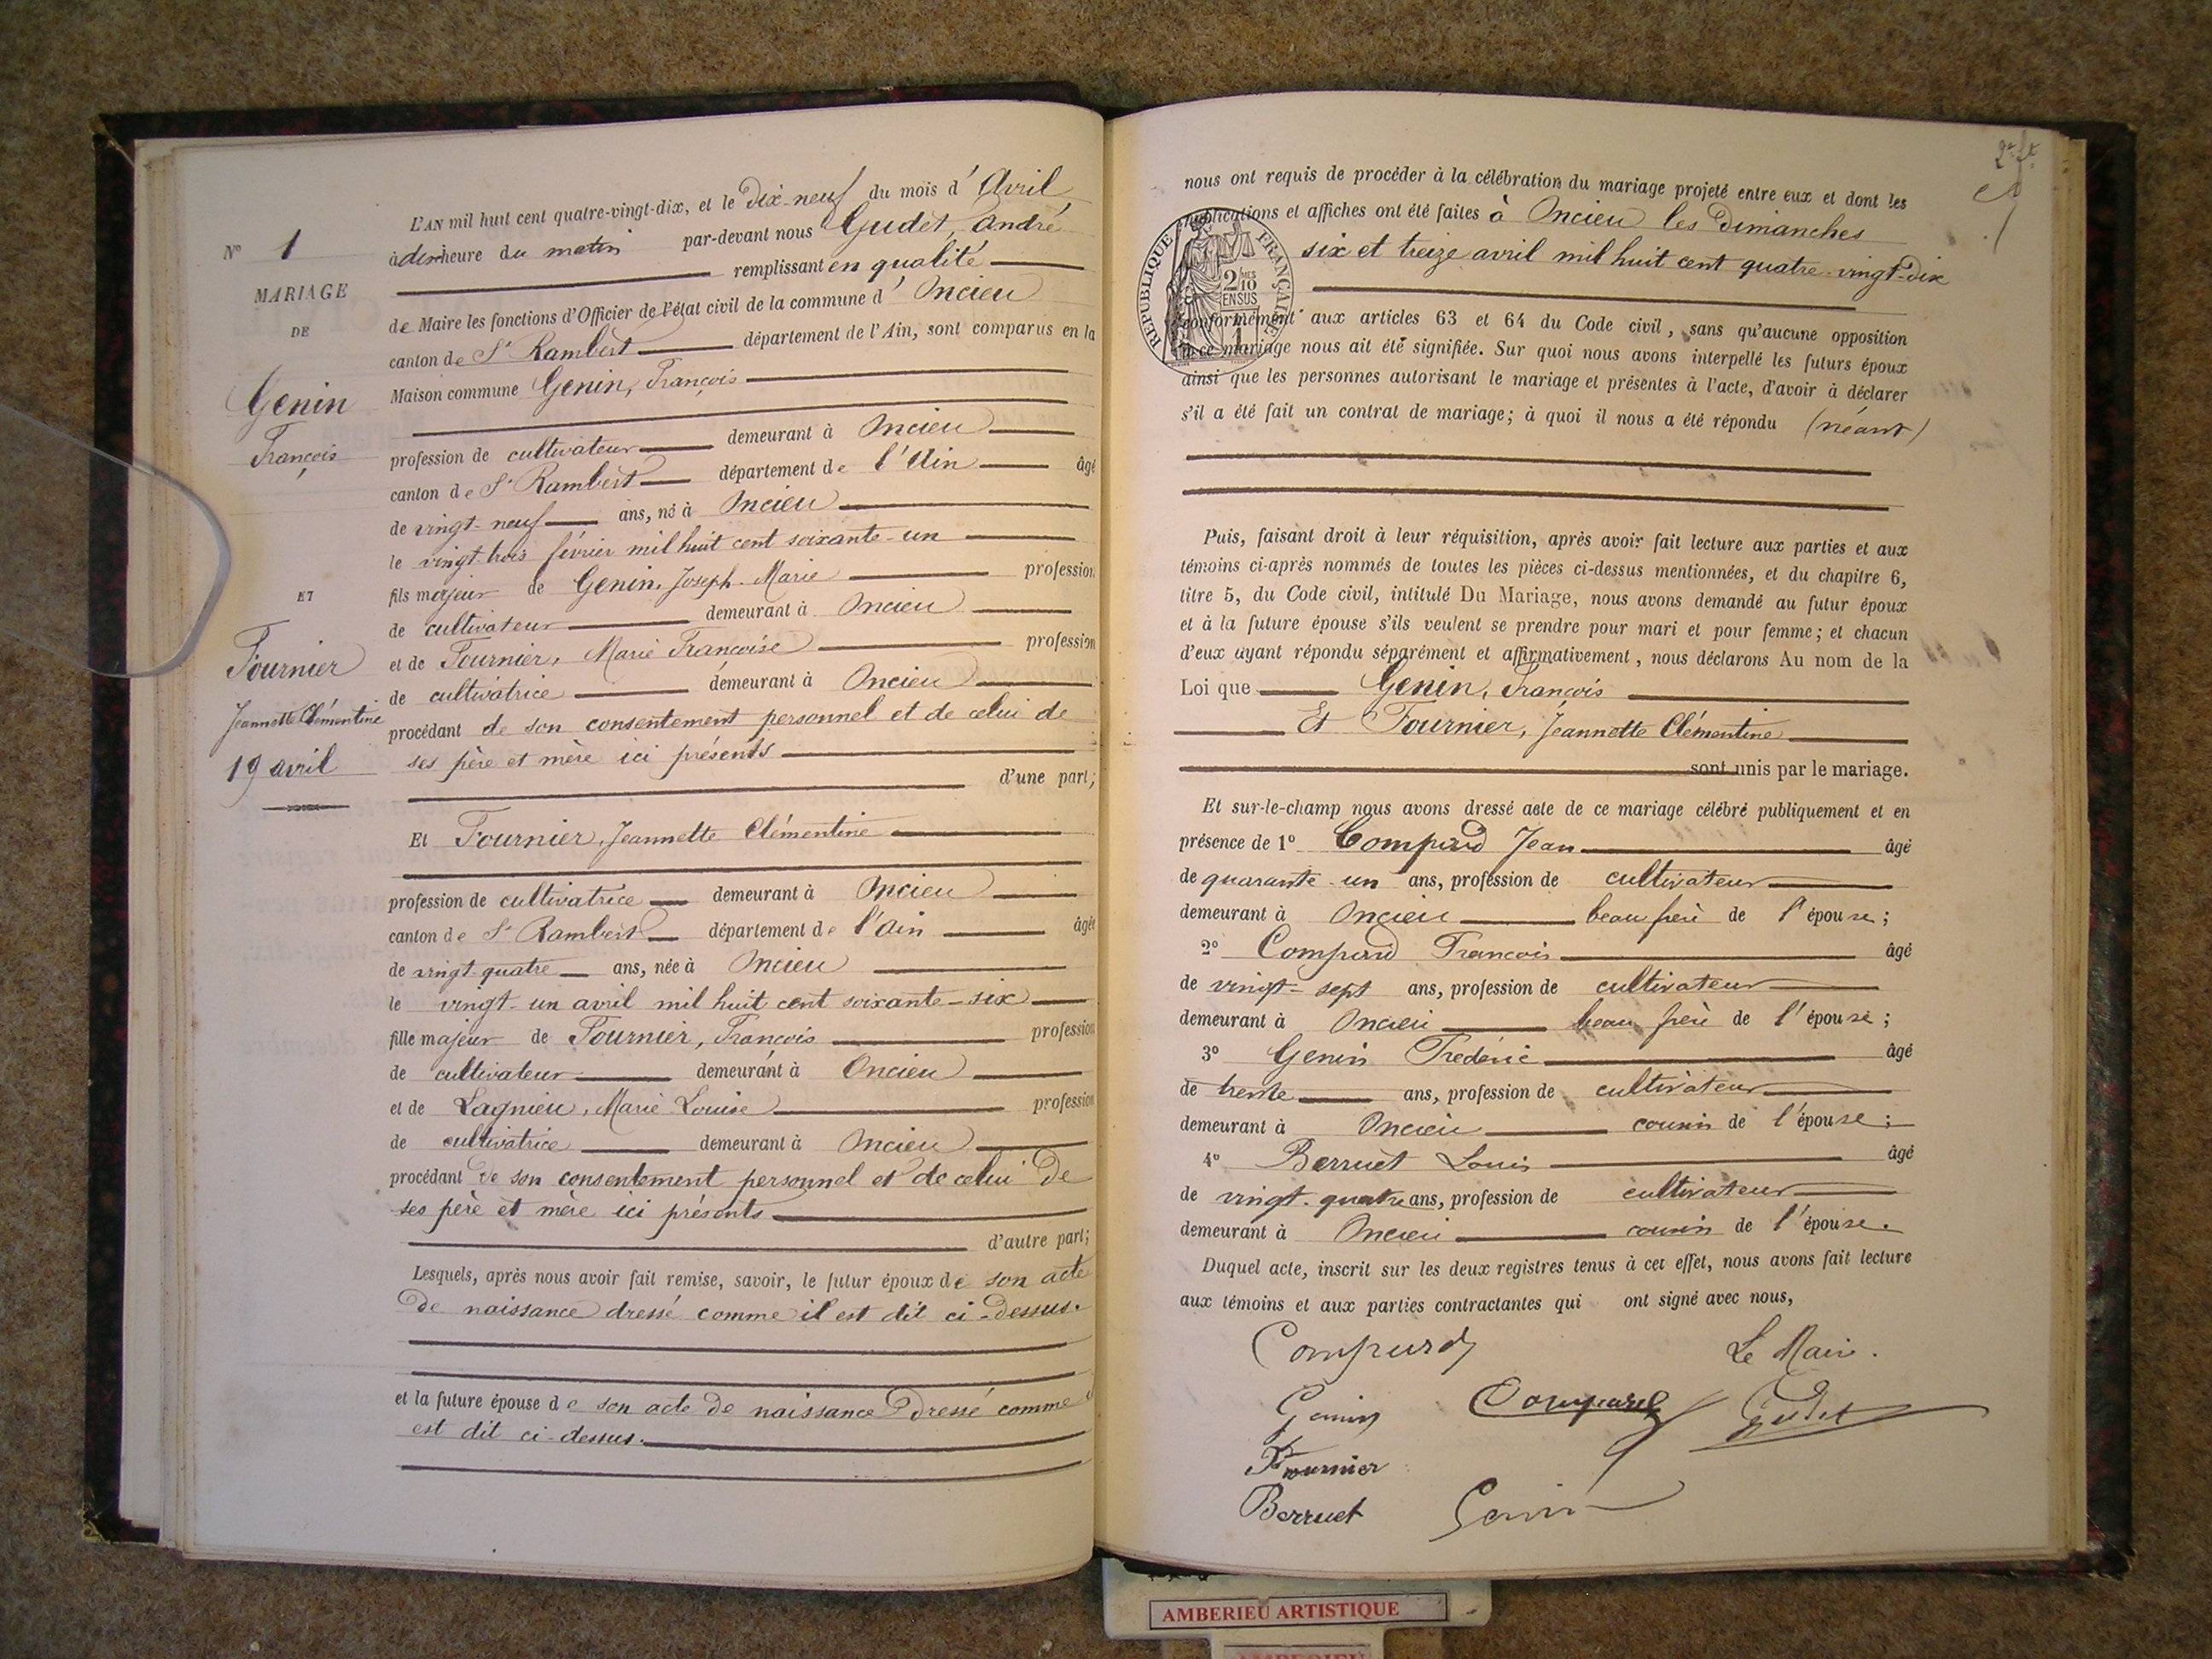 N° 1
MARIAGE
DE
Genin
François
ET
Fournier
Jeannette Clémentine
19 avril
L'AN mil huit cent quatre-vingt-dix, et le Dix-neuf du mois d' Avril
à dix heure du matin par-devant nous Gudet, André
remplissant en qualité
de Maire les fonctions d'Officier de l'état civil de la commune d' Oncieu
canton de St Rambert département de l'Ain, sont comparus en la
Maison commune Genin, François
profession de cultivateur demeurant à Oncieu
canton de St Rambert département de l'Ain âgé
de vingt-neuf ans, né à Oncieu
le vingt-trois février mil huit cent soixante-un
fils majeur de Genin, Joseph-Marie profession
de cultivateur demeurant à Oncieu
et de Fournier, Marie Françoise profession
de cultivatrice demeurant à Oncieu
procédant de son consentement personnel et de celui de
ses père et mère ici présents
d'une part;
Et Fournier, Jeannette Clémentine
profession de cultivatrice demeurant à Oncieu
canton de St Rambert département de l'Ain âgée
de vingt quatre ans, née à Oncieu
le vingt-un avril mil huit cent soixante-six
fille majeur de Fournier, François profession
de cultivateur demeurant à Oncieu
et de Lagnieu, Marie Louise profession
de cultivatrice demeurant à Oncieu
procédant de son consentement personnel et de celui de
ses père et mère ici présents
d'autre part;
Lesquels, après nous avoir fait remise, savoir, le futur époux de son acte
de naissance dressé comme il est dit ci-dessus.
et la future épouse de son acte de naissance dressé comme il
est dit ci-dessus.
nous ont requis de procéder à la célébration du mariage projeté entre eux et dont les
publications et affiches ont été faites à Oncieu les Dimanches
six et treize avril mil huit cent quatre-vingt-dix
REPUBLIQUE FRANÇAISE
2 MES
10
EN SUS
1
conformément aux articles 63 et 64 du Code civil, sans qu'aucune opposition
à ce mariage nous ait été signifiée. Sur quoi nous avons interpellé les futurs époux
ainsi que les personnes autorisant le mariage et présentes à l'acte, d'avoir à déclarer
s'il a été fait un contrat de mariage; à quoi il nous a été répondu (néant)
Puis, faisant droit à leur réquisition, après avoir fait lecture aux parties et aux
témoins ci-après nommés de toutes les pièces ci-dessus mentionnées, et du chapitre 6,
titre 5, du Code civil, intitulé Du Mariage, nous avons demandé au futur époux
et à la future épouse s'ils veulent se prendre pour mari et pour femme; et chacun
d'eux ayant répondu séparément et affirmativement, nous déclarons Au nom de la
Loi que Genin, François
Et Fournier, Jeannette Clémentine
sont unis par le mariage.
Et sur-le-champ nous avons dressé acte de ce mariage célébré publiquement et en
présence de 1° Compurd Jean âgé
de quarante-un ans, profession de cultivateur
demeurant à Oncieu beau frère de l'épouse;
2° Compurd François âgé
de vingt-sept ans, profession de cultivateur
demeurant à Oncieu beau frère de l'épouse;
3° Genin Frédéric âgé
de trente ans, profession de cultivateur
demeurant à Oncieu cousin de l'épouse;
4° Berruet Louis âgé
de vingt-quatre ans, profession de cultivateur
demeurant à Oncieu cousin de l'épouse.
Duquel acte, inscrit sur les deux registres tenus à cet effet, nous avons fait lecture
aux témoins et aux parties contractantes qui ont signé avec nous,
Compurd Le Maire.
Genin Compurd Gudet
Fournier
Berruet Genin
AMBERIEU ARTISTIQUE
AMBERIEU